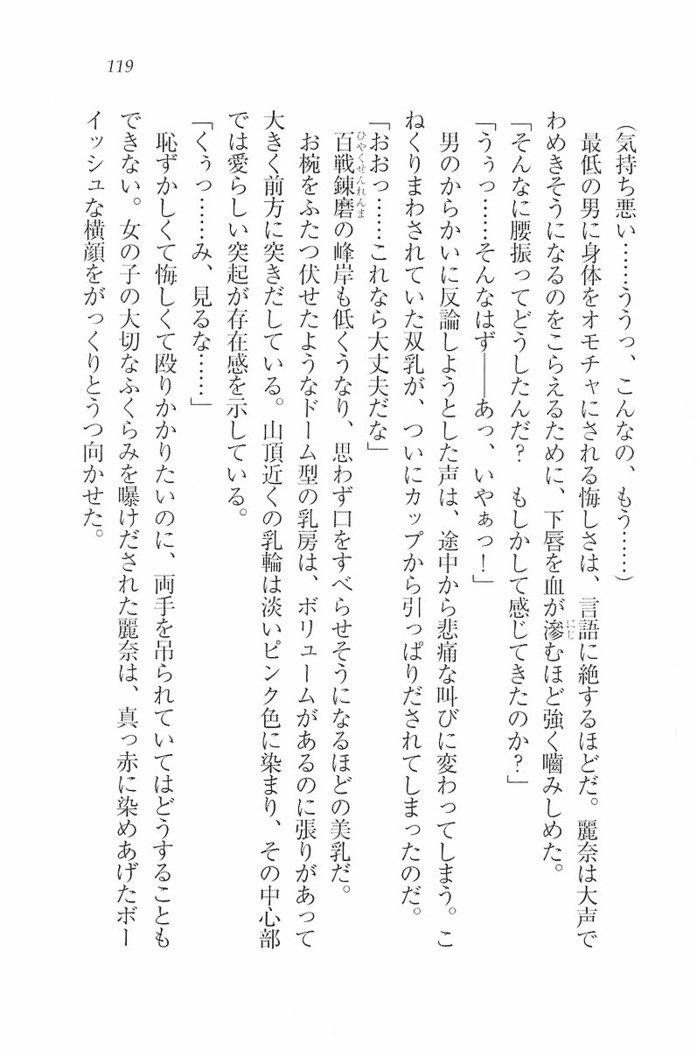 119
(気持ち悪い……ううっ、こんなの、もう……)
最低の男に身体をオモチャにされる悔しさは、言語に絶するほどだ。麗奈は大声で
わめきそうになるのをこらえるために、下唇を血が滲むほど強く嚙みしめた。
にじ
「そんなに腰振ってどうしたんだ? もしかして感じてきたのか?」
「うぅっ……そんなはず――あっ、いやぁっ!」
男のからかいに反論しようとした声は、途中から悲痛な叫びに変わってしまう。こ
ねくりまわされていた双乳が、ついにカップから引っぱりだされてしまったのだ。
「おおっ……これなら大丈夫だな」
百戦錬磨の峰岸も低くうなり、思わず口をすべらせそうになるほどの美乳だ。
ひゃくせんれんま
お椀をふたつ伏せたようなドーム型の乳房は、ボリュームがあるのに張りがあって
大きく前方に突きだしている。山頂近くの乳輪は淡いピンク色に染まり、その中心部
では愛らしい突起が存在感を示している。
「くぅっ……み、見るな……」
恥ずかしくて悔しくて殴りかかりたいのに、両手を吊られていてはどうすることも
できない。女の子の大切なふくらみを曝けだされた麗奈は、真っ赤に染めあげたボー
イッシュな横顔をがっくりとうつ向かせた。